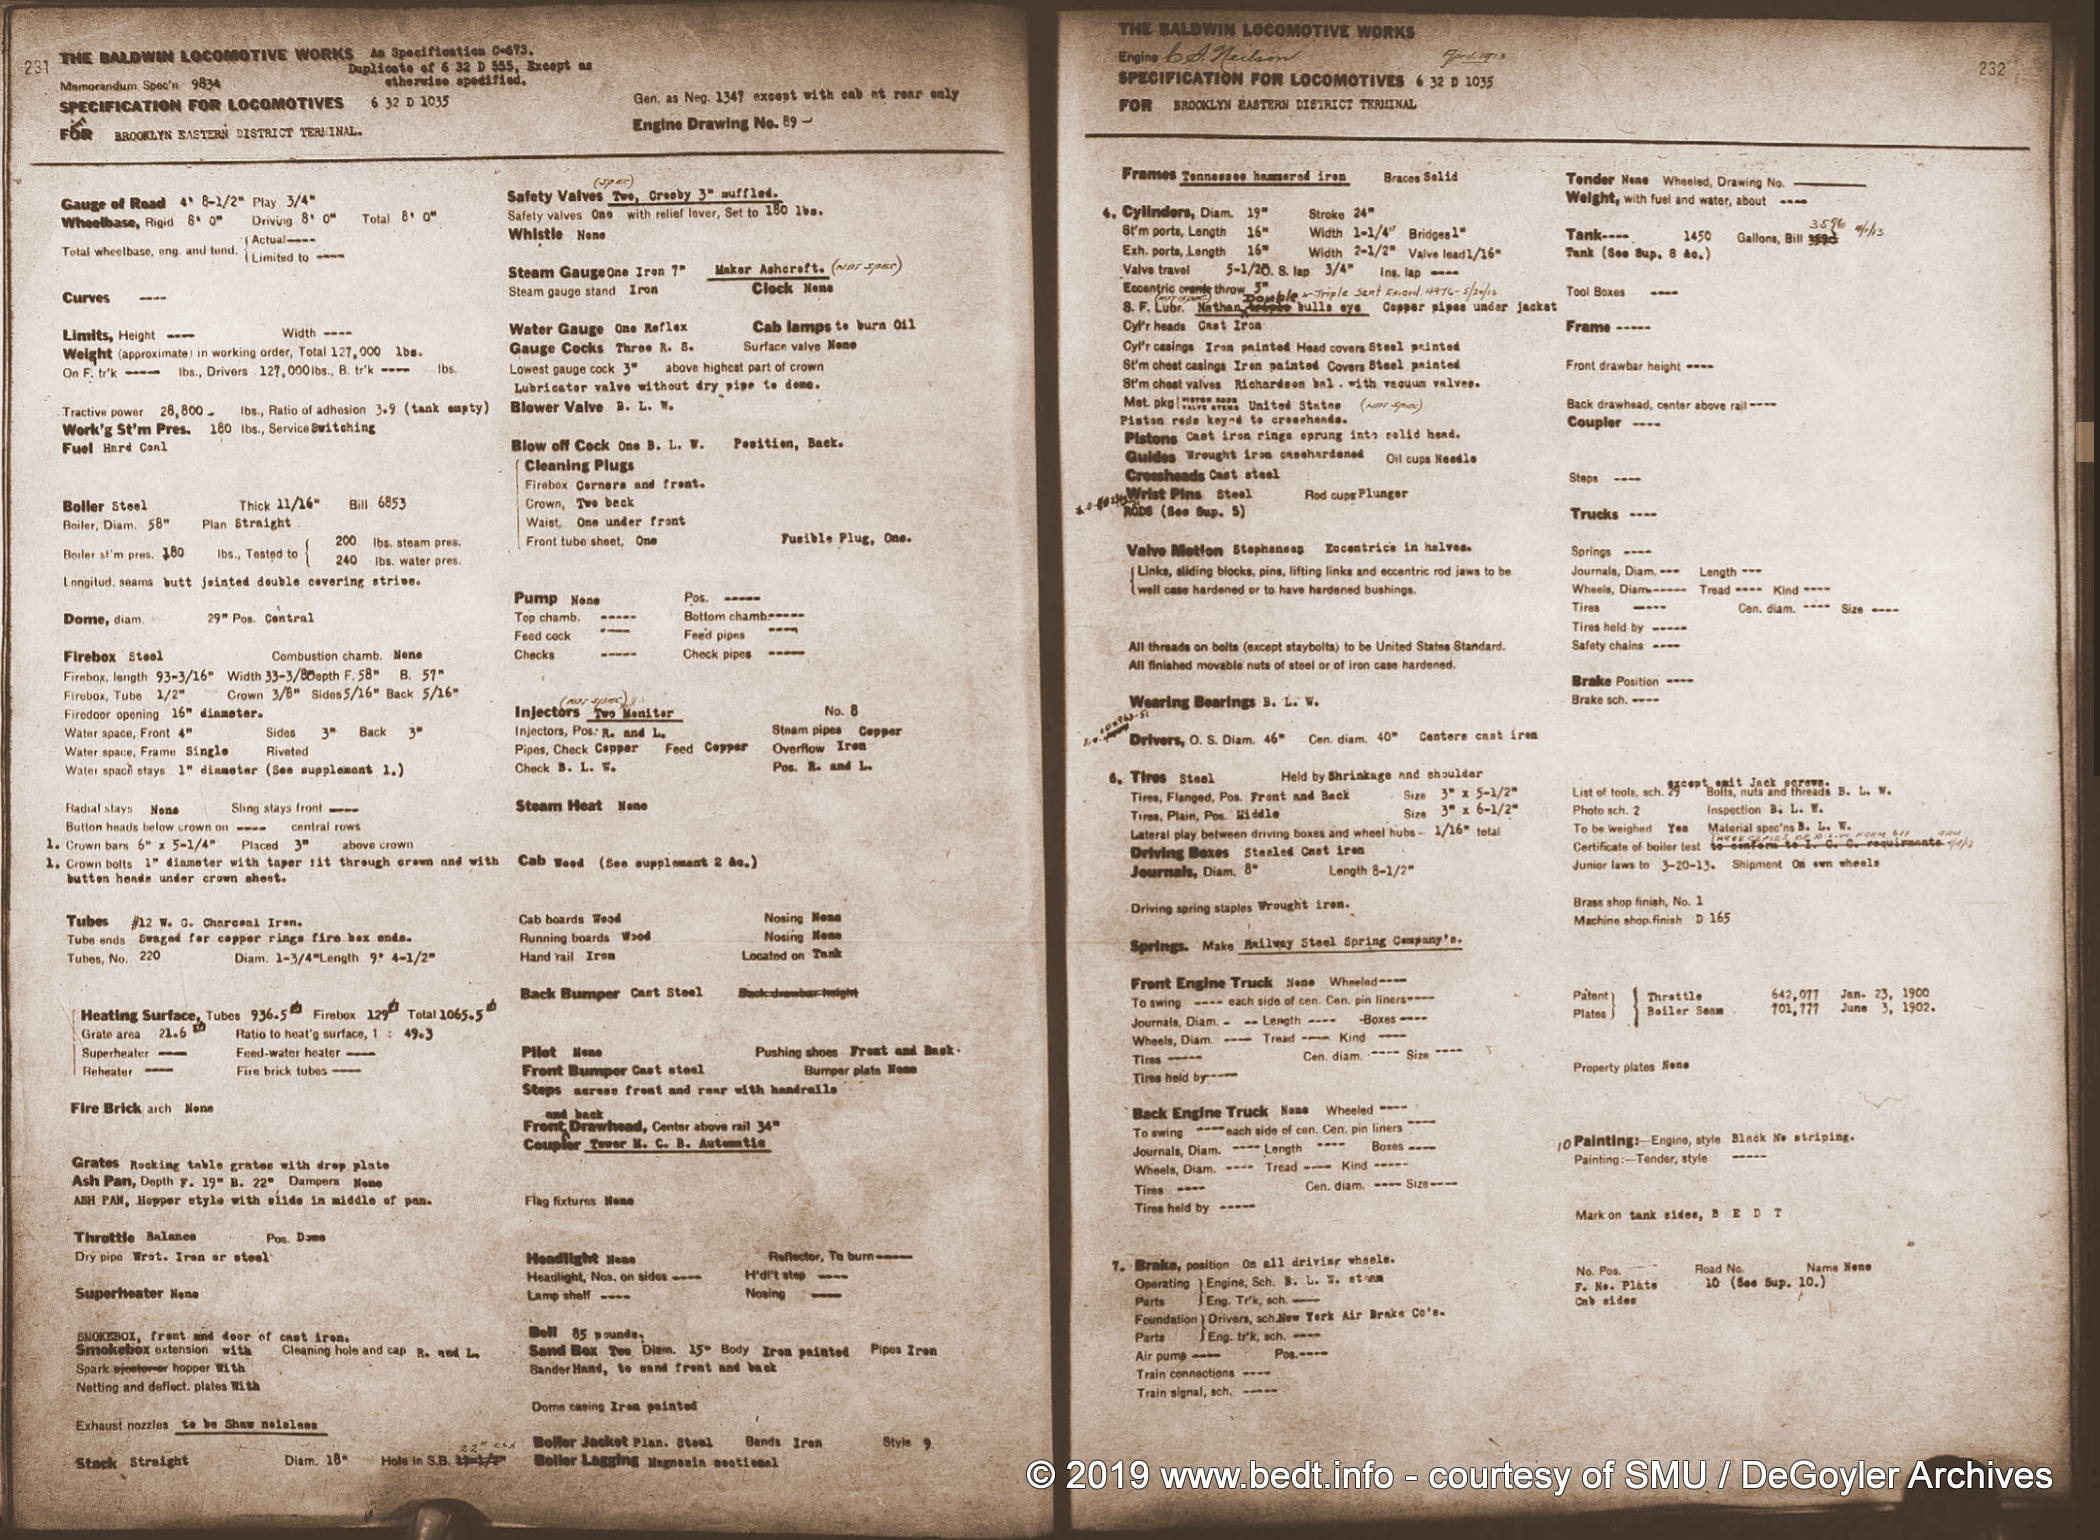 231
THE BALDWIN LOCOMOTIVE WORKS As Specification C-673.
Duplicate of 6 32 D 555, Except as
Memorandum Spec'n 9834 otherwise specified.
SPECIFICATION FOR LOCOMOTIVES 6 32 D 1035
Gen. as Neg. 1347 except with cab at rear only
FOR BROOKLYN EASTERN DISTRICT TERMINAL.
Engine Drawing No. 89
Gauge of Road 4' 8-1/2" Play 3/4"
Wheelbase, Rigid 8' 0" Driving 8' 0" Total 8' 0"
Total wheelbase, eng. and tend. { Actual ----
{ Limited to ----
Curves ----
Limits, Height ---- Width ----
Weight (approximate) in working order, Total 127,000 lbs.
On F. tr'k ----- lbs., Drivers 127,000 lbs., B. tr'k ---- lbs.
Tractive power 28,800 lbs., Ratio of adhesion 3.9 (tank empty)
Work'g St'm Pres. 180 lbs., Service Switching
Fuel Hard Coal
Boiler Steel Thick 11/16" Bill 6853
Boiler, Diam. 58" Plan Straight
Boiler st'm pres. 180 lbs., Tested to { 200 lbs. steam pres.
240 lbs. water pres.
Longitud. seams butt jointed double covering strips.
Dome, diam. 29" Pos. Central
Firebox Steel Combustion chamb. None
Firebox, length 93-3/16" Width 33-3/8" Depth F. 58" B. 57"
Firebox, Tube 1/2" Crown 3/8" Sides 5/16" Back 5/16"
Firedoor opening 16" diameter.
Water space, Front 4" Sides 3" Back 3"
Water space, Frame Single Riveted
Water space stays 1" diameter (See supplement 1.)
Radial stays None Sling stays front ----
Button heads below crown on ---- central rows
1. Crown bars 6" x 5-1/4" Placed 3" above crown
1. Crown bolts 1" diameter with taper fit through crown and with
button heads under crown sheet.
Tubes #12 W. G. Charcoal Iron.
Tube ends Swaged for copper rings fire box ends.
Tubes, No. 220 Diam. 1-3/4" Length 9' 4-1/2"
Heating Surface, Tubes 936.5 Firebox 129 Total 1065.5
Grate area 21.6 Ratio to heat'g surface, 1 : 49.3
Superheater ---- Feed-water heater ----
Reheater ---- Fire brick tubes ----
Fire Brick arch None
Grates Rocking table grates with drop plate
Ash Pan, Depth F. 19" B. 22" Dampers None
ASH PAN, Hopper style with slide in middle of pan.
Throttle Balance Pos. Dome
Dry pipe Wrot. Iron or steel
Superheater None
SMOKEBOX, front and door of cast iron.
Smokebox extension with Cleaning hole and cap R. and L.
Spark ejector or hopper With
Netting and deflect. plates With
Exhaust nozzles to be Shaw noiseless
22"
Stack Straight Diam. 18" Hole in S.B.
(spec)
Safety Valves Two, Crosby 3" muffled.
Safety valves One with relief lever, Set to 180 lbs.
Whistle None
Steam Gauge One Iron 7" Maker Ashcroft. (NOT SPEC)
Steam gauge stand Iron Clock None
Water Gauge One Reflex Cab lamps to burn Oil
Gauge Cocks Three R. S. Surface valve None
Lowest gauge cock 3" above highest part of crown
Lubricator valve without dry pipe to dome.
Blower Valve B. L. W.
Blow off Cock One B. L. W. Position, Back.
Cleaning Plugs
Firebox Corners and front.
Crown, Two back
Waist, One under front
Front tube sheet, One Fusible Plug, One.
Pump None Pos. -----
Top chamb. ----- Bottom chamb. -----
Feed cock ---- Feed pipes ----
Checks ----- Check pipes -----
(NOT SPEC)
Injectors Two Monitor No. 8
Injectors, Pos. R. and L. Steam pipes Copper
Pipes, Check Copper Feed Copper Overflow Iron
Check B. L. W. Pos. R. and L.
Steam Heat None
Cab Wood (See supplement 2 &c.)
Cab boards Wood Nosing None
Running boards Wood Nosing None
Hand rail Iron Located on Tank
Back Bumper Cast Steel Back drawbar height
Pilot None Pushing shoes Front and Back
Front Bumper Cast steel Bumper plate None
Steps across front and rear with handrails
and back
Front Drawhead, Center above rail 34"
Coupler Tower M. C. B. Automatic
Flag fixtures None
Headlight None Reflector, To burn -----
Headlight, Nos. on sides ---- H'dl't step ----
Lamp shelf ---- Nosing ----
Bell 85 pounds.
Sand Box Two Diam. 15" Body Iron painted Pipes Iron
Sander Hand, to sand front and back
Dome casing Iron painted
Boiler Jacket Plan. Steel Bands Iron Style 9
Boiler Lagging Magnesia sectional
THE BALDWIN LOCOMOTIVE WORKS
Engine C. S. Neilson April 1913
232
SPECIFICATION FOR LOCOMOTIVES 6 32 D 1035
FOR BROOKLYN EASTERN DISTRICT TERMINAL
Frames Tennessee hammered iron Braces Solid
4. Cylinders, Diam. 19" Stroke 24"
St'm ports, Length 16" Width 1-1/4" Bridges 1"
Exh. ports, Length 16" Width 2-1/2" Valve lead 1/16"
Valve travel 5-1/2" O. S. lap 3/4" Ins. lap ----
Eccentric crank throw 5"
(NOT SPEC) Double Triple Sent
S. F. Lubr. Nathan bulls eye Copper pipes under jacket
Cyl'r heads Cast Iron
Cyl'r casings Iron painted Head covers Steel painted
St'm chest casings Iron painted Covers Steel painted
St'm chest valves Richardson bal. with vacuum valves.
Met. pkg { PISTON RODS VALVE STEMS United States (NOT SPEC)
Piston rods keyed to crossheads.
Pistons Cast iron rings sprung into solid head.
Guides Wrought iron casehardened Oil cups Needle
Crossheads Cast steel
Wrist Pins Steel Rod cups Plunger
RODS (See Sup. 5)
Valve Motion Stephenson Eccentrics in halves.
Links, sliding blocks, pins, lifting links and eccentric rod jaws to be
well case hardened or to have hardened bushings.
All threads on bolts (except staybolts) to be United States Standard.
All finished movable nuts of steel or of iron case hardened.
Wearing Bearings B. L. W.
Drivers, O. S. Diam. 46" Cen. diam. 40" Centers cast iron
6. Tires Steel Held by Shrinkage and shoulder
Tires, Flanged, Pos. Front and Back Size 3" x 5-1/2"
Tires, Plain, Pos. Middle Size 3" x 6-1/2"
Lateral play between driving boxes and wheel hubs - 1/16" total
Driving Boxes Steeled Cast iron
Journals, Diam. 8" Length 8-1/2"
Driving spring staples Wrought iron.
Springs. Make Railway Steel Spring Company's.
Front Engine Truck None Wheeled ----
To swing ---- each side of cen. Cen. pin liners ----
Journals, Diam. - -- Length ---- Boxes ----
Wheels, Diam. ---- Tread ---- Kind ----
Tires ----- Cen. diam. ---- Size ----
Tires held by -----
Back Engine Truck None Wheeled ----
To swing ---- each side of cen. Cen. pin liners ----
Journals, Diam. ---- Length ---- Boxes ----
Wheels, Diam. ---- Tread ---- Kind -----
Tires ---- Cen. diam. ---- Size ----
Tires held by -----
7. Brake, position On all driving wheels.
Operating } Engine, Sch. B. L. W. steam
Parts } Eng. Tr'k, sch. ----
Foundation } Drivers, sch. New York Air Brake Co's.
Parts } Eng. tr'k, sch. ----
Air pump ---- Pos. ----
Train connections ----
Train signal, sch. -----
Tender None Wheeled, Drawing No. ----
Weight, with fuel and water, about ----
3596
Tank ---- 1450 Gallons, Bill
Tank (See Sup. 8 &c.)
Tool Boxes ----
Frame -----
Front drawbar height ----
Back drawhead, center above rail ----
Coupler ----
Steps ----
Trucks ----
Springs ----
Journals, Diam. --- Length ---
Wheels, Diam. ------ Tread ---- Kind ----
Tires ----- Cen. diam. ---- Size ----
Tires held by -----
Safety chains ----
Brake Position ----
Brake sch. ----
except omit Jack screws.
List of tools, sch. 29 Bolts, nuts and threads B. L. W.
Photo sch. 2 Inspection B. L. W.
To be weighed Yes Material spec'ns B. L. W.
THREE COPIES OF B.L.W. FORM
Certificate of boiler test to conform to I. C. C. requirments
Junior laws to 3-20-13. Shipment On own wheels
Brass shop finish, No. 1
Machine shop finish D 165
Patent } { Throttle 642,077 Jan. 23, 1900
Plates } { Boiler Seam 701,777 June 3, 1902.
Property plates None
10 Painting:—Engine, style Black No striping.
Painting:—Tender, style -----
Mark on tank sides, B E D T
No. Pos. Road No. Name None
F. No. Plate 10 (See Sup. 10.)
Cab sides
© 2019 www.bedt.info - courtesy of SMU / DeGoyler Archives